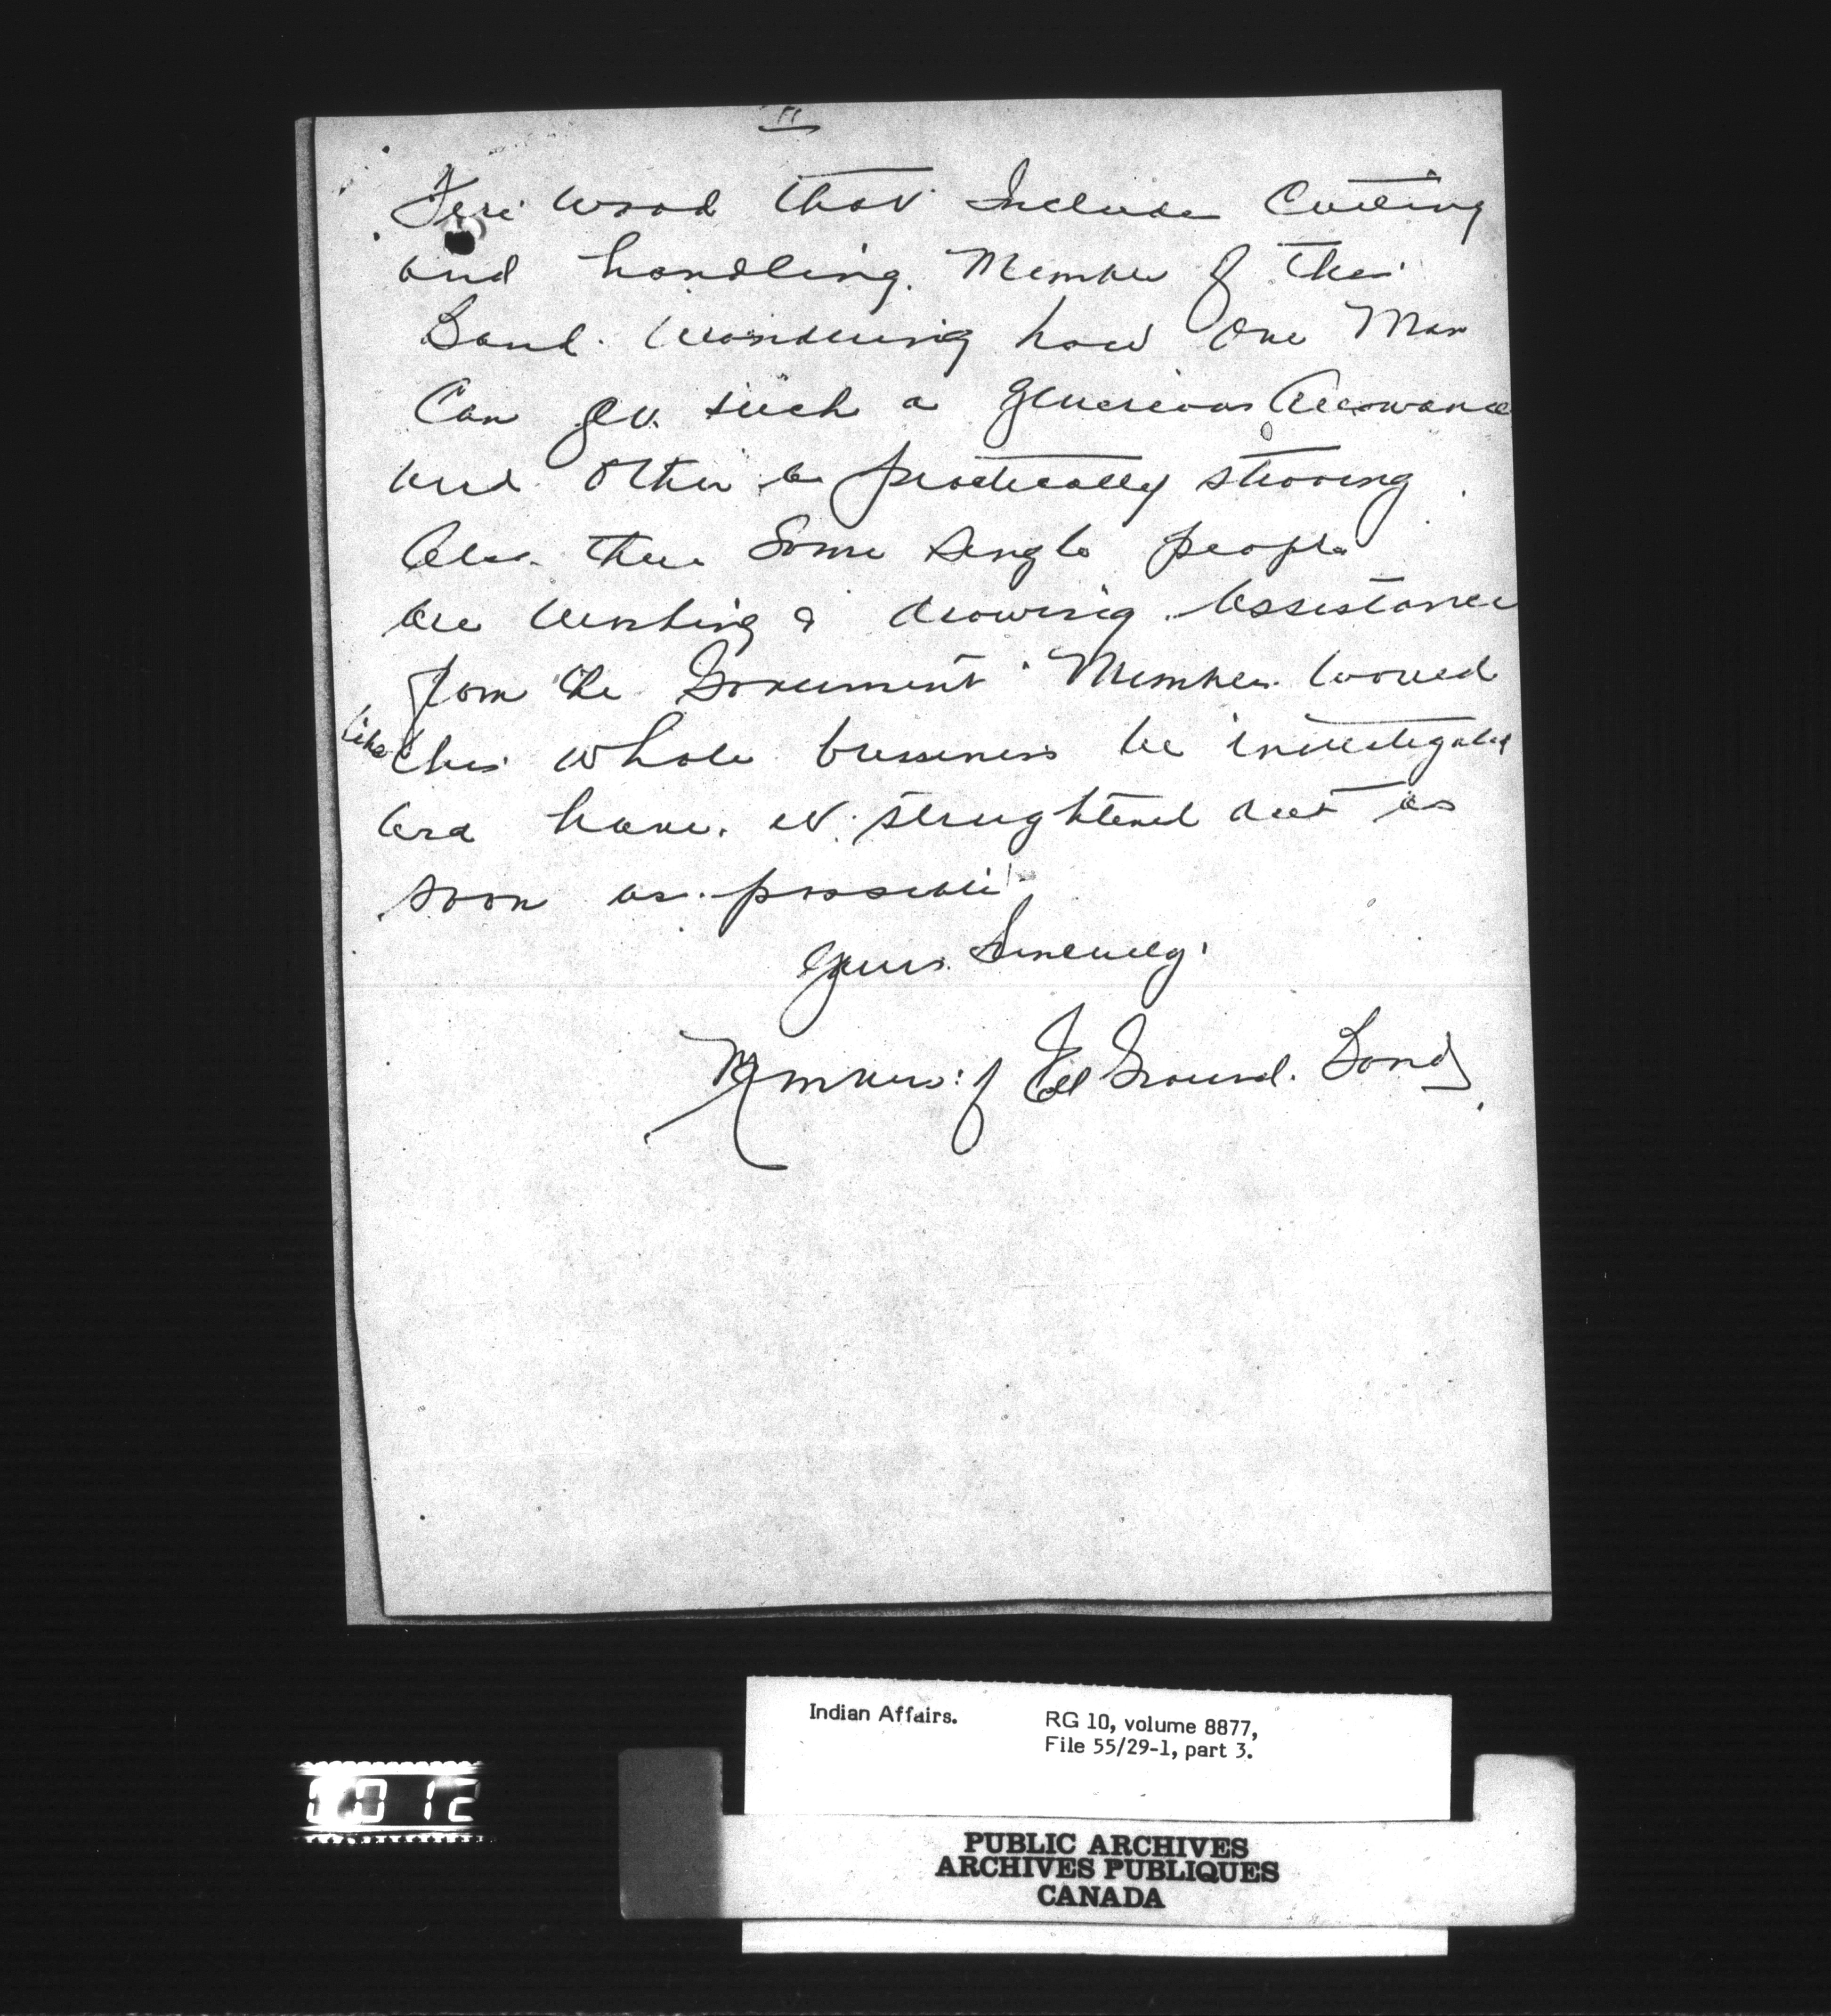 II
Fire wood that Include Cutting
and handling. Member of this
Band. Wondering how one Man
Can get such a generious Allowance
and Other are practically starving.
Also there Some single people
are working & drawing Assistance
from the Government Members would
like this whole bussiness be investigated
and have it straghtened out as
soon as possible
Yours Sincerely.
Members of Ground. Band.
Indian Affairs.
RG 10, volume 8877,
File 55/29-1, part 3.
0012
PUBLIC ARCHIVES
ARCHIVES PUBLIQUES
CANADA